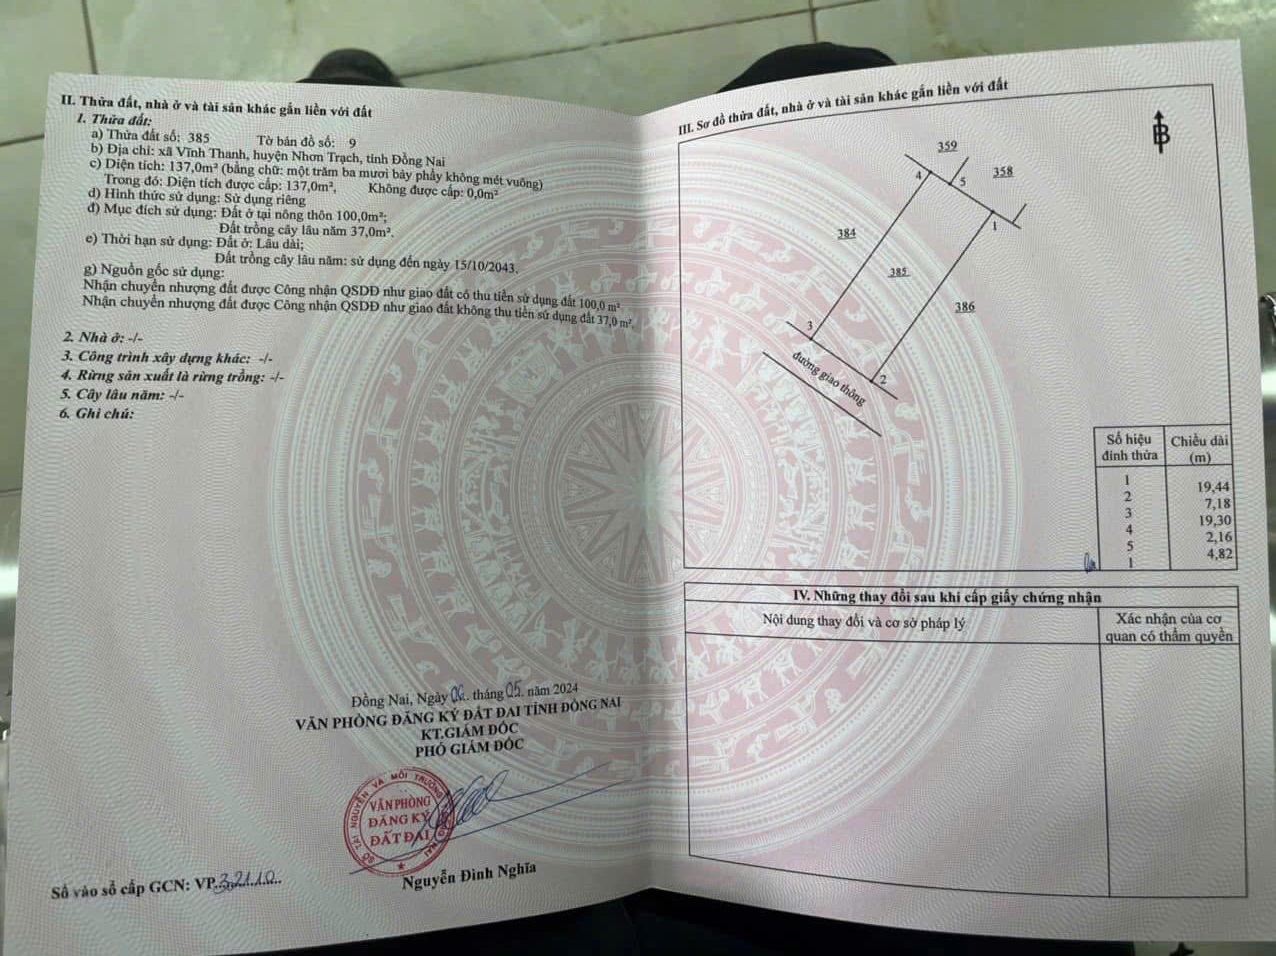 II. Thửa đất, nhà ở và tài sản khác gắn liền với đất
1. Thửa đất:
a) Thửa đất số: 385 Tờ bản đồ số: 9
b) Địa chỉ: xã Vĩnh Thanh, huyện Nhơn Trạch, tỉnh Đồng Nai
c) Diện tích: 137,0m² (bằng chữ: một trăm ba mươi bảy phẩy không mét vuông)
Trong đó: Diện tích được cấp: 137,0m², Không được cấp: 0,0m²
d) Hình thức sử dụng: Sử dụng riêng
đ) Mục đích sử dụng: Đất ở tại nông thôn 100,0m²;
Đất trồng cây lâu năm 37,0m².
e) Thời hạn sử dụng: Đất ở: Lâu dài;
Đất trồng cây lâu năm: sử dụng đến ngày 15/10/2043.
g) Nguồn gốc sử dụng:
Nhận chuyển nhượng đất được Công nhận QSDĐ như giao đất có thu tiền sử dụng đất 100,0 m².
Nhận chuyển nhượng đất được Công nhận QSDĐ như giao đất không thu tiền sử dụng đất 37,0 m².
2. Nhà ở: -/-
3. Công trình xây dựng khác: -/-
4. Rừng sản xuất là rừng trồng: -/-
5. Cây lâu năm: -/-
6. Ghi chú:
Đồng Nai, Ngày 06. tháng 05. năm 2024
VĂN PHÒNG ĐĂNG KÝ ĐẤT ĐAI TỈNH ĐỒNG NAI
KT.GIÁM ĐỐC
PHÓ GIÁM ĐỐC
SỞ TÀI NGUYÊN VÀ MÔI TRƯỜNG
VĂN PHÒNG
ĐĂNG KÝ
ĐẤT ĐAI
Nguyễn Đình Nghĩa
Số vào sổ cấp GCN: VP 32110
III. Sơ đồ thửa đất, nhà ở và tài sản khác gắn liền với đất
B
359
358
4
5
1
384
385
386
3
2
đường giao thông
Số hiệu đỉnh thửa Chiều dài (m)
1
19,44
2
7,18
3
19,30
4
2,16
5
4,82
1
IV. Những thay đổi sau khi cấp giấy chứng nhận
Nội dung thay đổi và cơ sở pháp lý
Xác nhận của cơ
quan có thẩm quyền